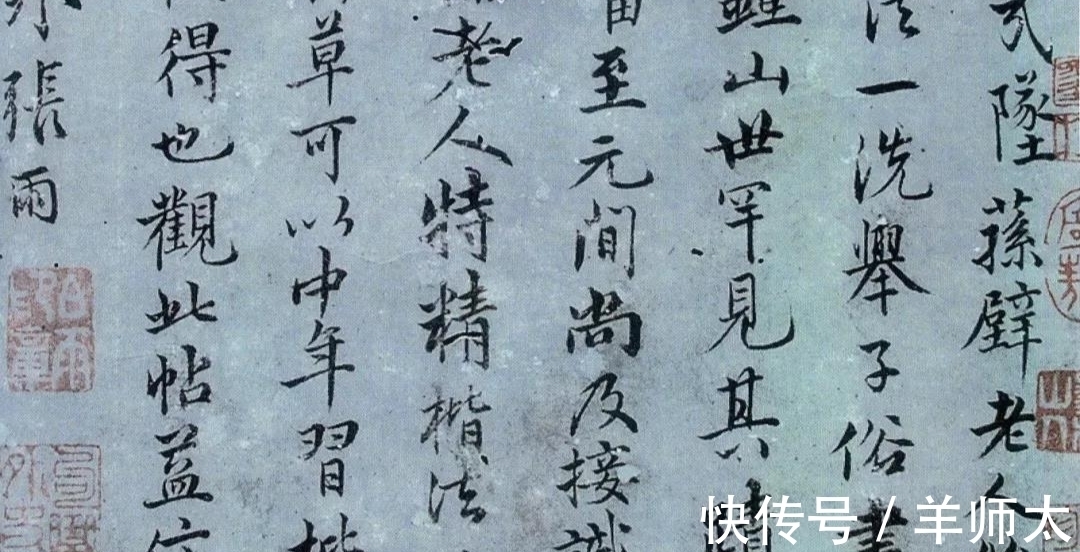 墜蓀壁老人
法一洗舉子俗書
山世罕見其
至元間尚及接識
老人特精楷法
草可以中年習楷
得也觀此帖益信
張雨
快传号/羊师太